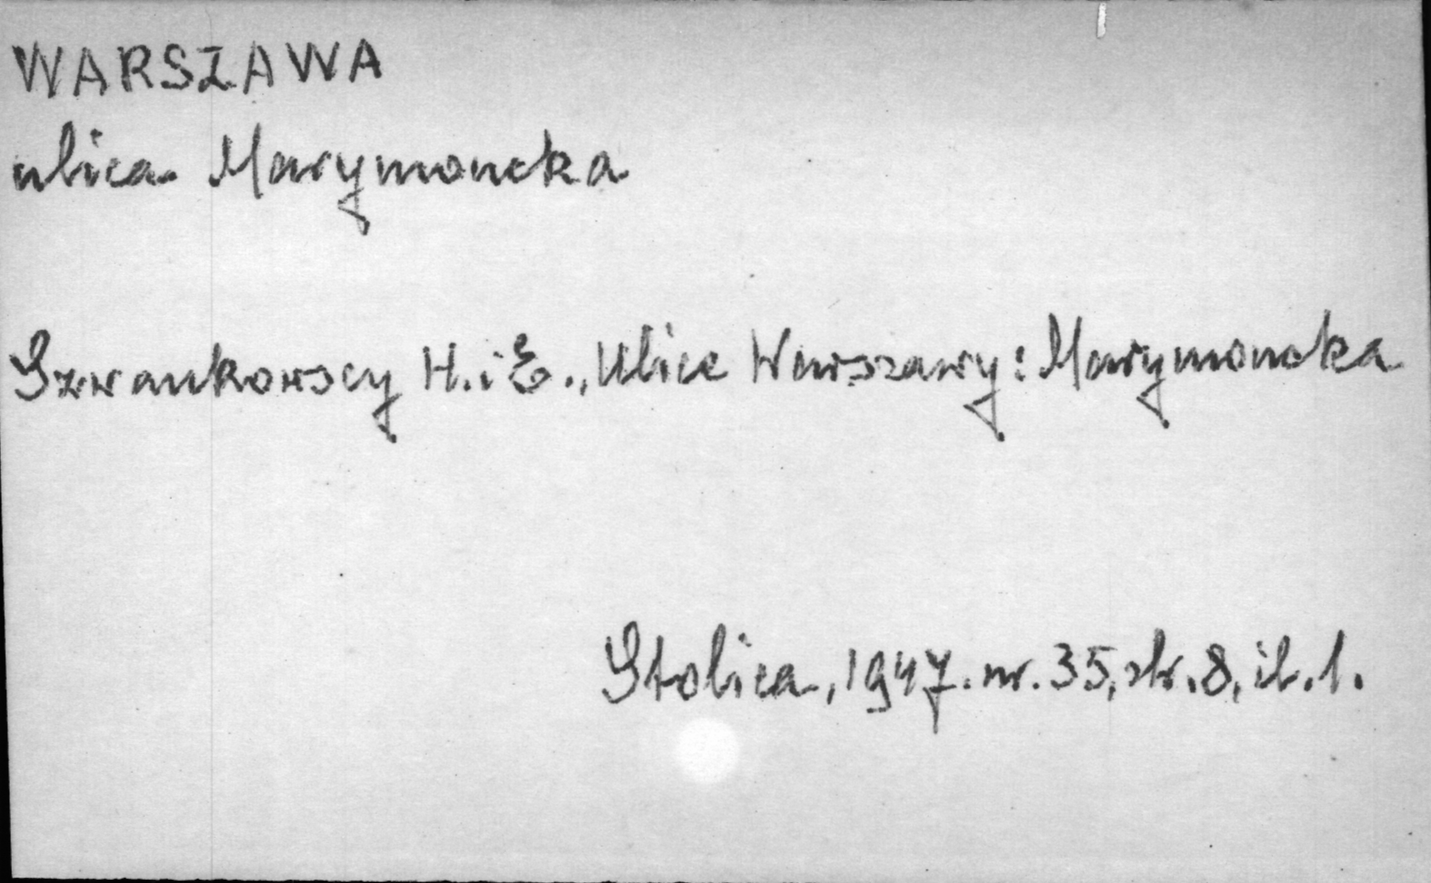 WARSZAWA
ulica Marymoncka
Szwankowscy H. i E., Ulice Warszawy: Marymoncka
Stolica, 1947. nr. 35, str. 8, il. 1.